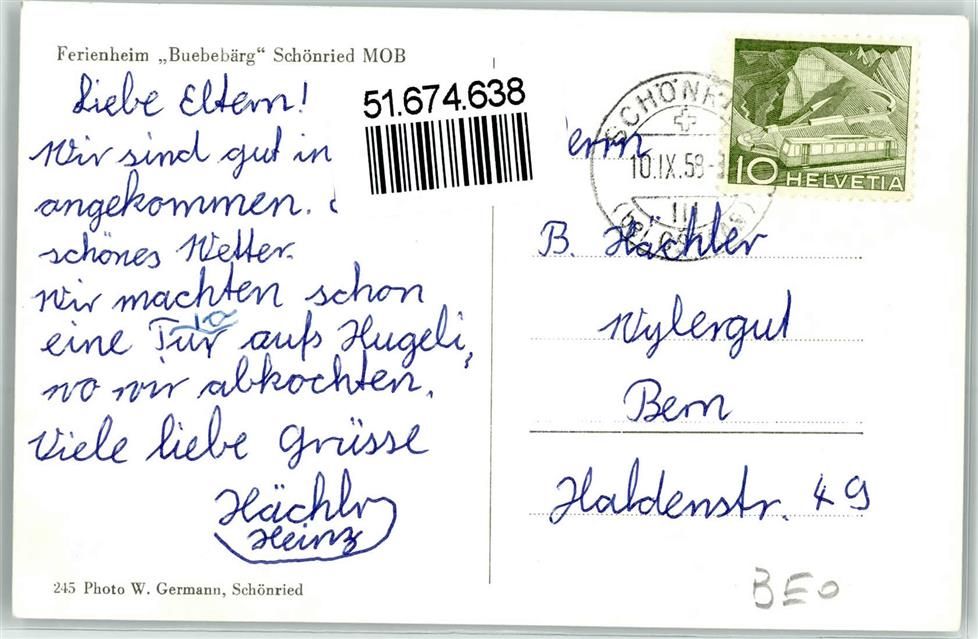 Ferienheim „Buebebärg“ Schönried MOB
Liebe Eltern!
Wir sind gut in
angekommen.
schönes Wetter.
Wir machten schon
eine Tur aufs Hugeli,
wo wir abkochten.
Viele liebe Grüsse
Hächler
Heinz
245 Photo W. Germann, Schönried
51.674.638
SCHÖNR
10.IX.58-
10 HELVETIA
errn
B. Hächler
Wylergut
Bern
Haldenstr. 49
BEO